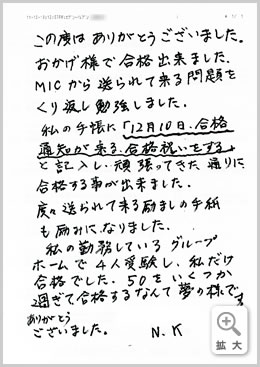 この度はありがとうございました。
おかげ様で合格出来ました。
MICから送られて来る問題を
くり返し勉強しました。
私の手帳に「12月10日、合格
通知が来る、合格祝いをする」
と記入し、頑張ってきた通りに
合格する事が出来ました。
度々送られて来る励ましの手紙
も励みになりました。
私の勤務しているグループ
ホームで4人受験し、私だけ
合格でした。50をいくつか
過ぎて合格するなんて夢の様です
ありがとう
ございました。 N.K
拡大